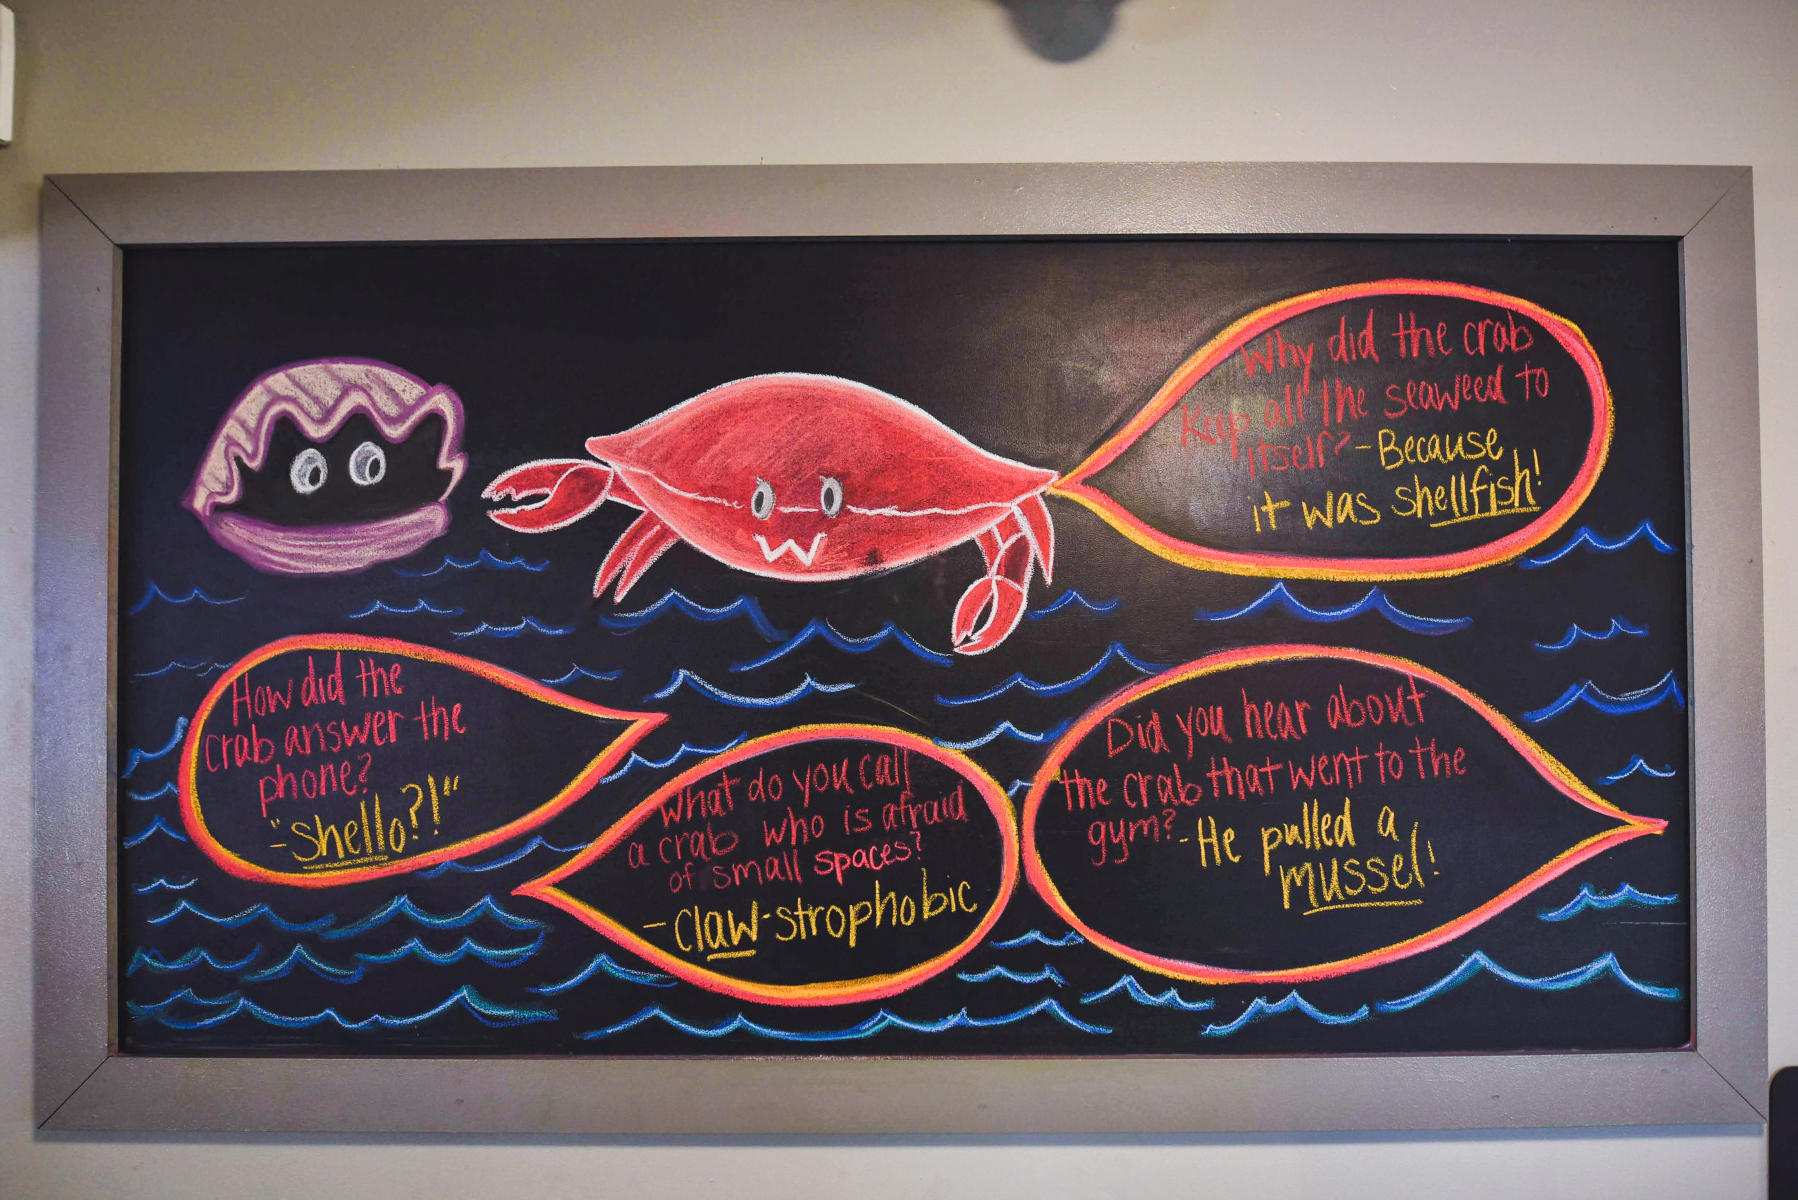 Why did the crab
Keep all the seaweed to
itself? - Because
it was shellfish!
How did the
crab answer the
phone?
- "Shello?!"
What do you call
a crab who is afraid
of small spaces?
- Claw-strophobic
Did you hear about
the crab that went to the
gym? - He pulled a
mussel!